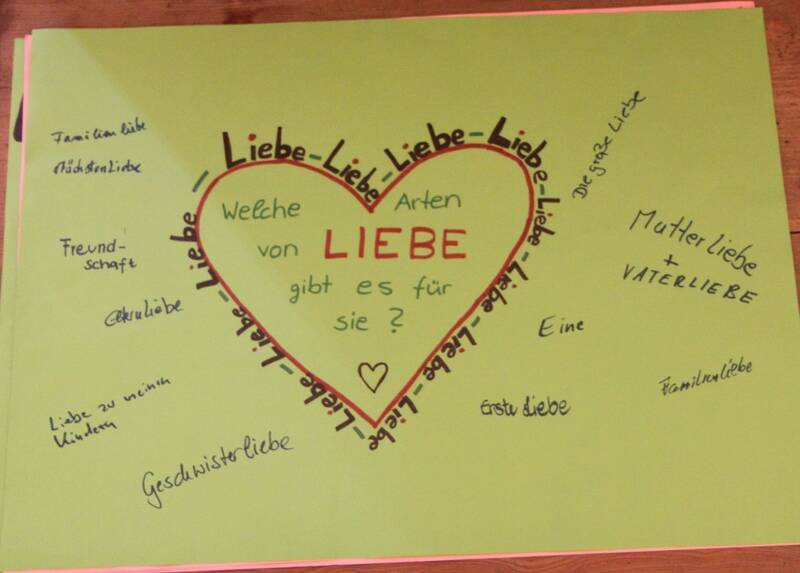 Liebe-Liebe-Liebe-Liebe-Liebe-Liebe-Liebe-Liebe-Liebe-Liebe-Liebe-Liebe-
Welche Arten
von LIEBE
gibt es für
sie ?
Familienliebe
Nächstenliebe
Freund-
schaft
Elternliebe
Liebe zu meinen
Kindern
Geschwisterliebe
Die große Liebe
Mutterliebe
+
VATERLIEBE
Eine
Erste Liebe
Familienliebe